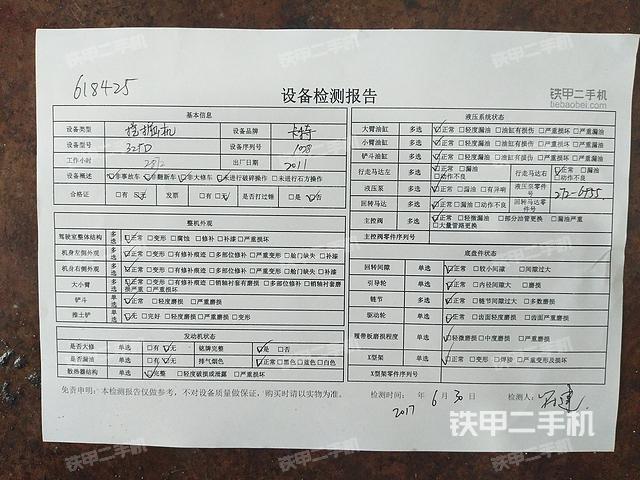 618425
铁甲二手机
tiebaobei.com
设备检测报告
基本信息
设备类型 挖掘机 设备品牌 卡特
设备型号 325D 设备序列号
工作小时 出厂日期 2011
设备概述 ☑非事故车 ☑非翻新车 ☑非大修车 ☑未进行破碎操作 □未进行石方操作
合格证 □有 ☑无 发票 □有 ☑无 是否打过锤 □是 ☑否
整机外观
驾驶室整体结构 多选 ☑正常 □变形 □腐蚀 □修补 □补漆 □严重损坏
机身左侧外观 多选 ☑正常 □变形 □有修补痕迹 □多部位修补 □严重变形 □舱门缺失 □补漆
机身右侧外观 多选 ☑正常 □变形 □有修补痕迹 □多部位修补 □严重变形 □舱门缺失 □补漆
大小臂 多选 ☑正常 □变形 □有修补痕迹 □销轴衬套有磨损 □多部位修补 □销轴衬套磨损严重 □严重损坏
铲斗 单选 ☑正常 □轻度磨损 □严重磨损
推土铲 单选 ☑无 □完好 □轻度磨损 □严重磨损 □变形
发动机状态
是否大修 单选 □有 ☑无 铭牌完整 ☑是 □否
是否漏油 单选 □有 ☑无 排气烟色 ☑正常 □黑色 □蓝色 □白色
散热器结构 单选 ☑完整 □轻度破损或泄露 □严重损坏
液压系统状态
大臂油缸 多选 ☑正常 □轻度漏油 □油缸有损伤 □严重损坏 □严重漏油
小臂油缸 多选 ☑正常 □轻度漏油 □油缸有损伤 □严重损坏 □严重漏油
铲斗油缸 多选 ☑正常 □轻度漏油 □油缸有损伤 □严重损坏 □严重漏油
行走马达左 多选 ☑正常 □漏油 □动作不良 行走马达右 ☑正常 □漏油 □动作不良
液压泵 多选 ☑正常 □漏油 □有异响 液压泵零件号 272-6955
回转马达 多选 ☑正常 □漏油 □动作不良 回转马达零件号
主控阀 多选 ☑正常 □轻微漏油 □部分油管更换 □漏油严重 □大量管路更换
主控阀零件序列号
底盘件状态
回转间隙 单选 ☑正常 □较小间隙 □间隙过大
引导轮 单选 ☑正常 □内径间隙大 □磨损
链节 多选 ☑正常 □链节间隙过大 □多数磨损
驱动轮 单选 ☑正常 □齿面轻度磨损 □齿面严重磨损
履带板磨损程度 单选 ☑轻微磨损 □中度磨损 □严重磨损
X型架 单选 ☑正常 □变形 □焊接 □严重变形及损坏
X型架零件序列号
免责申明：本检测报告仅做参考，不对设备质量做保证，购买时请以实物为准。
检测时间： 2017 年 6 月 30 日 检测人：
铁甲二手机